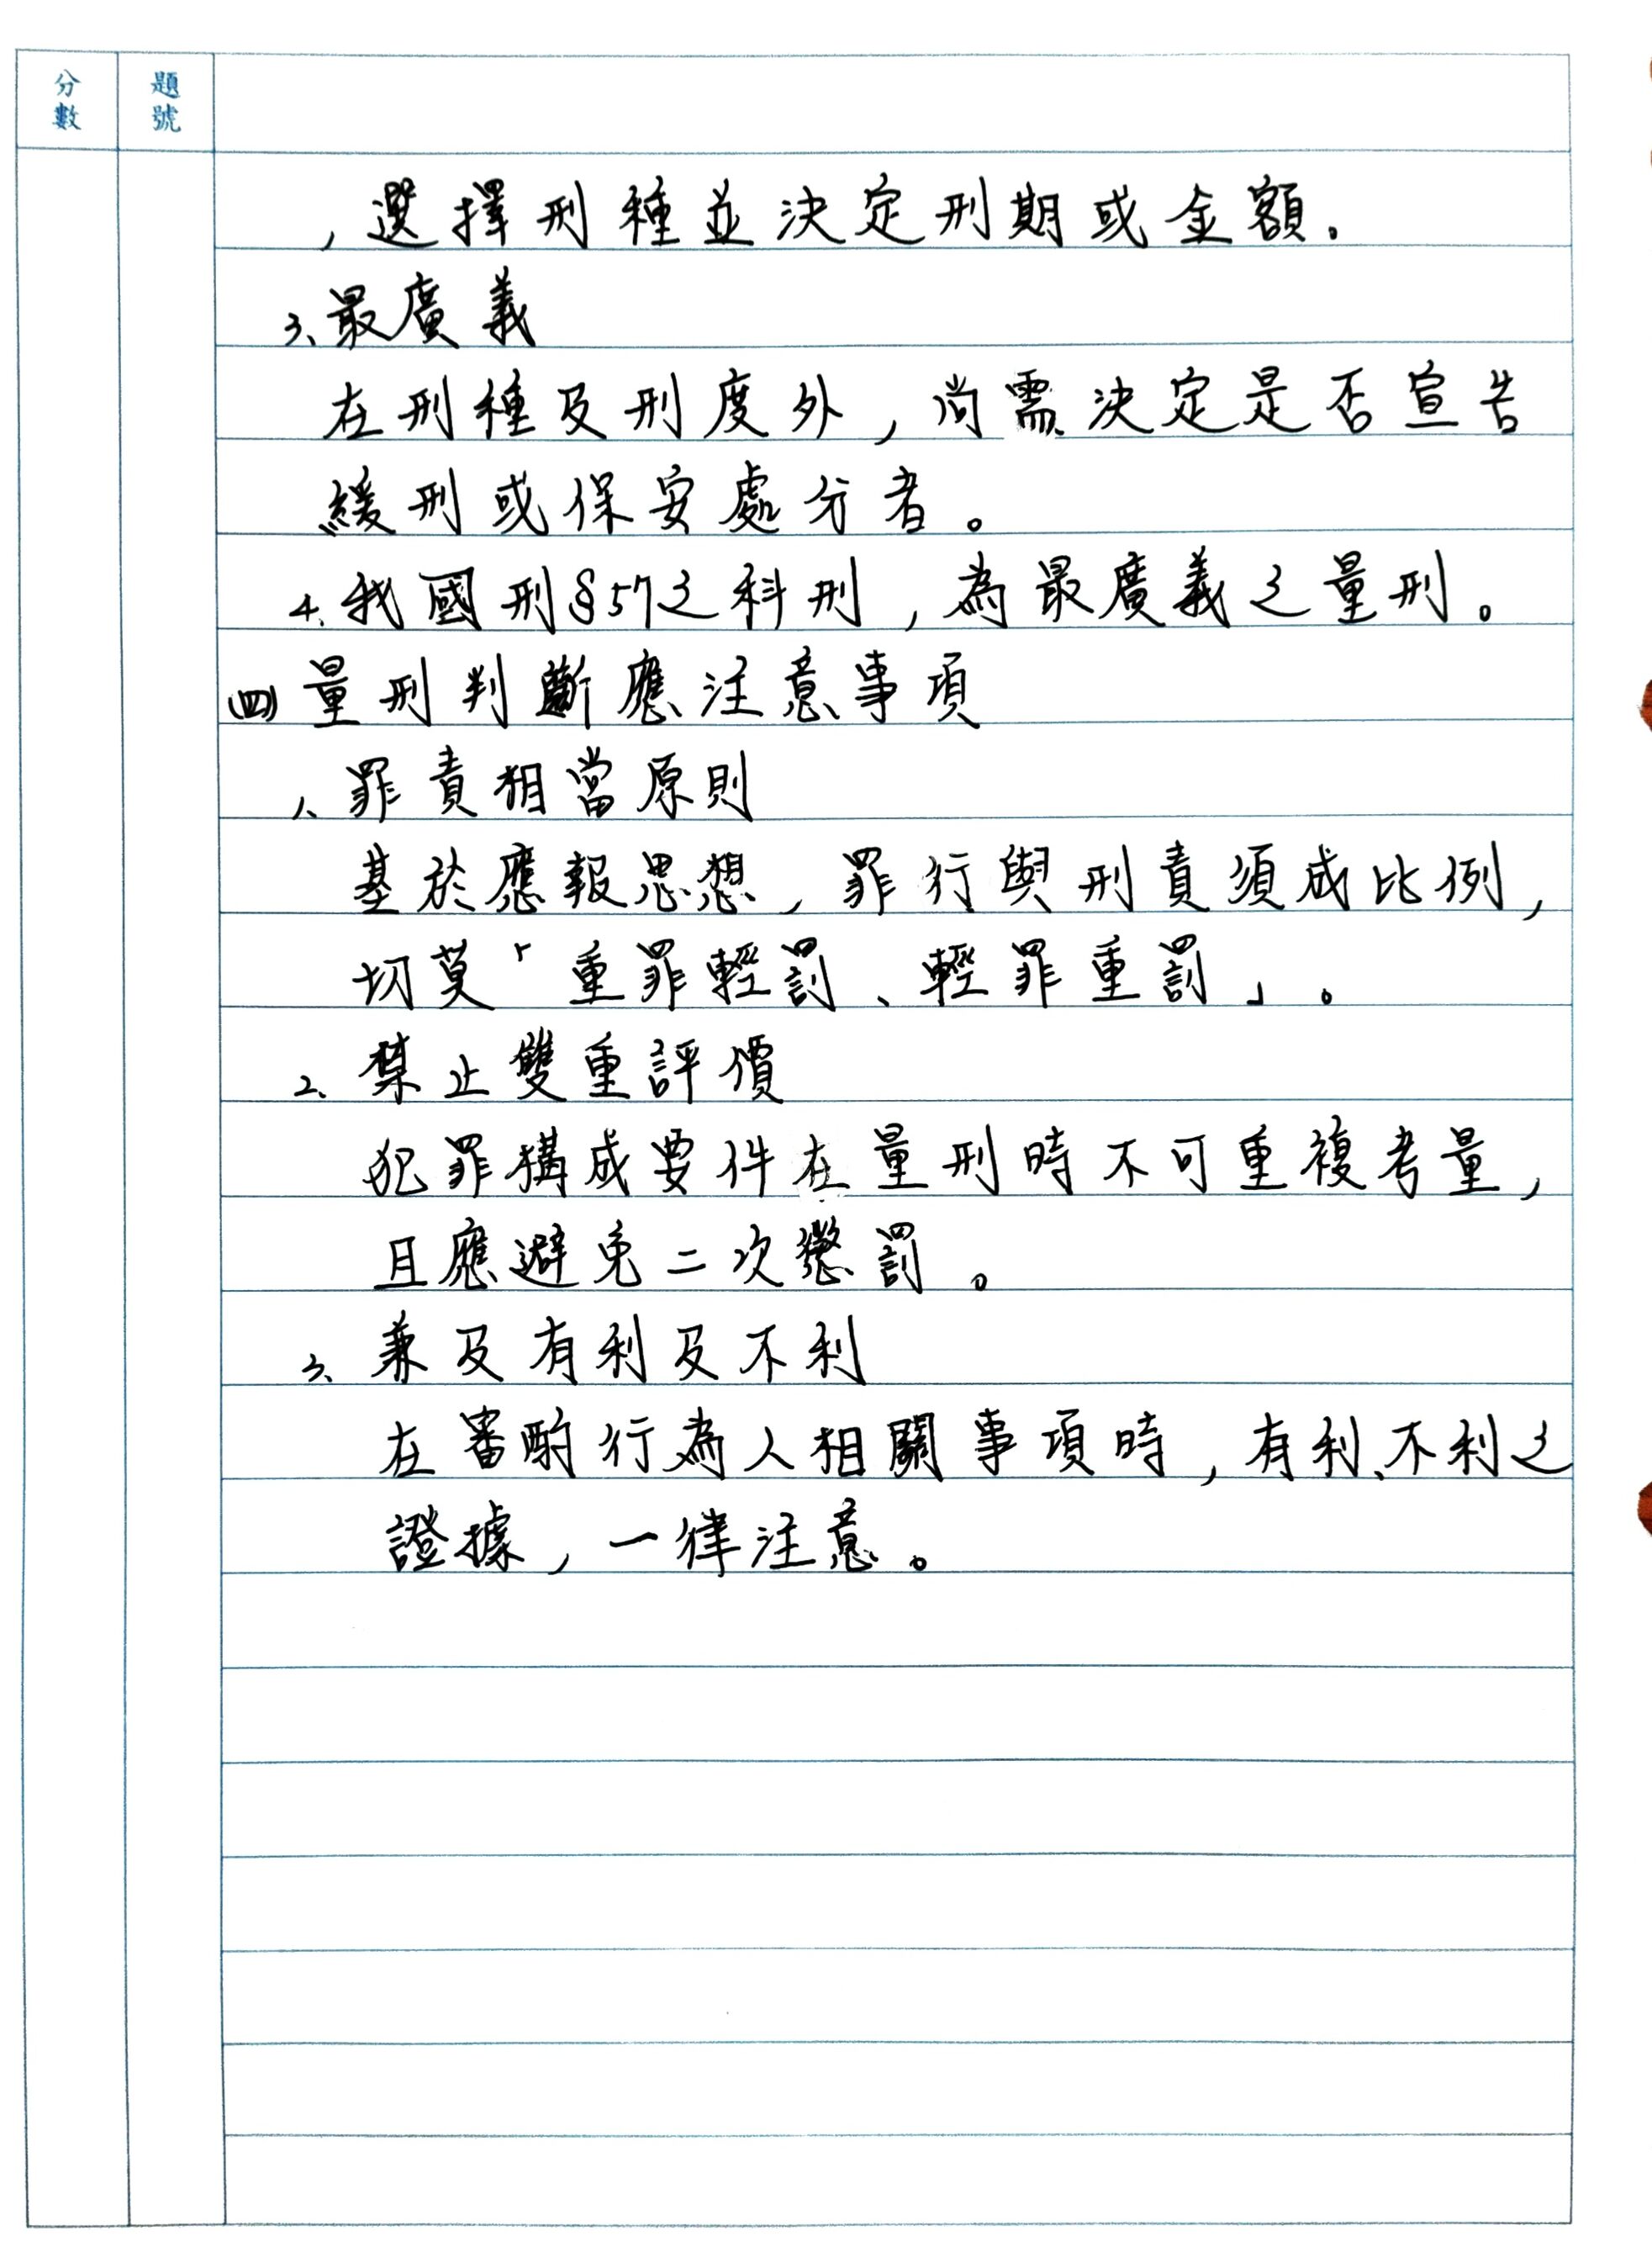 分數 題號
，選擇刑種並決定刑期或金額。
3、最廣義
在刑種及刑度外，尚需決定是否宣告
緩刑或保安處分者。
4、我國刑§57之科刑，為最廣義之量刑。
(四)量刑判斷應注意事項
1、罪責相當原則
基於應報思想，罪行與刑責須成比例，
切莫「重罪輕罰、輕罪重罰」。
2、禁止雙重評價
犯罪構成要件在量刑時不可重複考量，
且應避免二次懲罰。
3、兼及有利及不利
在審酌行為人相關事項時，有利、不利之
證據，一律注意。